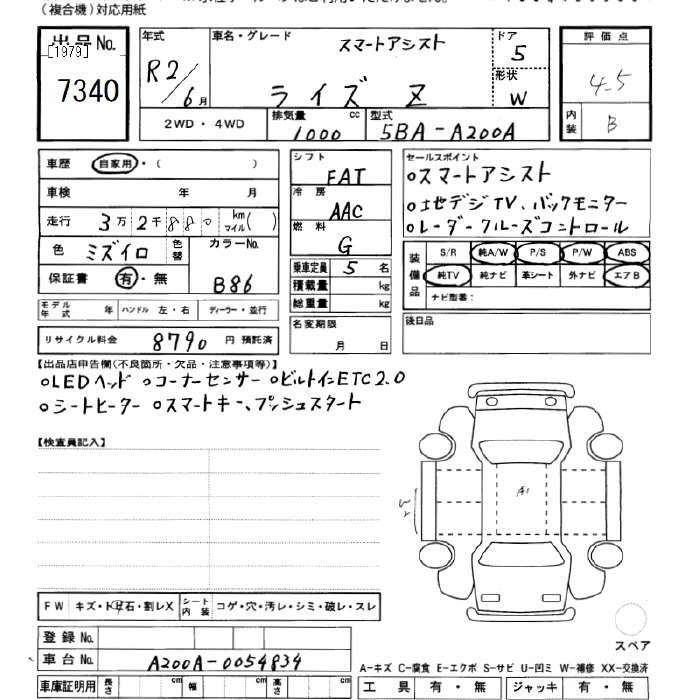 (複合機)対応用紙
出品No.
[1979]
7340
年式
R2/6月
車名・グレード
スマートアシスト
ライズ Z
ドア
5
形状
W
評価点
4.5
内装
B
2WD・4WD
排気量
1000 cc
型式
5BA-A200A
車歴 自家用・( )
車検 年 月
走行 3万2千880 km マイル( )
色 ミズイロ 色替 カラーNo. B86
保証書 有・無
モデル年式 年 ハンドル 左・右 ディーラー・並行
リサイクル料金 8790 円 預託済
シフト
FAT
冷房
AAC
燃料
G
乗車定員 5 名
積載量 kg
総重量 kg
名変期限
月 日
セールスポイント
○スマートアシスト
○地デジTV、バックモニター
○レーダークルーズコントロール
装備品
S/R 純A/W P/S P/W ABS
純TV 純ナビ 革シート 外ナビ エアB
ナビ型番:
後日品
【出品店申告欄(不良箇所・欠品・注意事項等)】
○LEDヘッド ○コーナーセンサー ○ビルトインETC2.0
○シートヒーター ○スマートキー、プッシュスタート
【検査員記入】
A1
W2
スペア
FW キズ・飛石・割レX シート内装 コゲ・穴・汚レ・シミ・破レ・スレ
登録No.
車台No. A200A-0054834
車庫証明用 長さ cm 幅 cm 高さ cm
A−キズ C−腐食 E−エクボ S−サビ U−凹ミ W−補修 XX−交換済
工具 有・無 ジャッキ 有・無